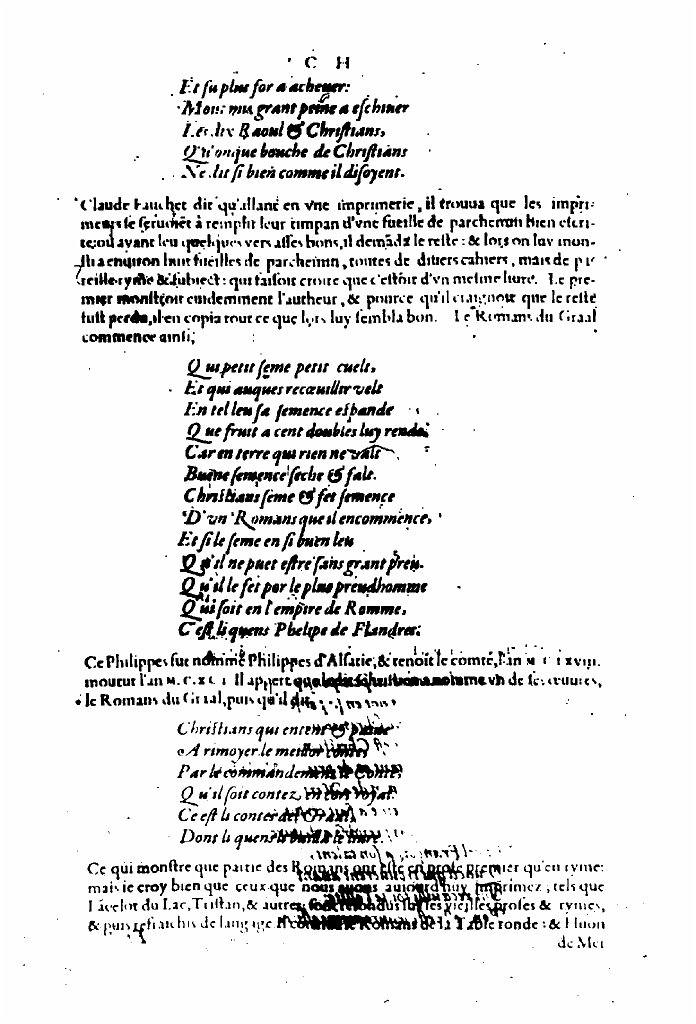 C H
Et fu plus for a acheuer:
Mout mis grant peine a eschiuer
Les dix Raoul & Christians,
Qu'onque bouche de Christians
Ne dit si bien comme il disoyent.
Claude Fauchet dit qu'allant en vne imprimerie, il trouua que les impri-
meurs se seruoiẽt à remplir leur timpan d'vne fueille de parchemin bien escri-
te: ou ayant leu quelques vers asses bons, il demãda le reste: & lors on luy mon-
stra enuiron huit fueilles de parchemin, toutes de diuers cahiers, mais de pa-
reille ryme & subiect: qui faisoit croire que c'estoit d'vn mesme liure. Le pre-
mier monstroit euidemment l'autheur, & pource qu'il craignoit que le reste
fust perdu, il en copia tout ce que lors luy sembla bon. Le Romans du Graal
commence ainsi;
Qui petit seme petit cuelt,
Et qui auques recœuillir velt
En tel leu sa semence espande
Que fruit a cent doubles luy rende;
Car en terre qui rien ne vaut
Buene semence seche & falt.
Christians seme & fet semence
D'vn Romans que il encommence,
Et si le seme en si buen leu
Qu'il ne puet estre sans grant preu.
Qu'il le fet por le plus preudhomme
Qui soit en l'empire de Romme,
C'est li quens Phelipe de Flandres:
Ce Philippes fut nommé Philippes d'Alsatie, & tenoit le comté, l'an M. C LXVIII.
mourut l'an M.C.XCI Il appert que ledit Christians a nomme vn de ses œuures,
le Romans du Graal, puis qu'il dit,
Christians qui entent & peine
A rimoyer le meillor conte,
Par le commandement le Conte,
Qu'il soit contez en cort royal.
Ce est li contes del Graal,
Dont li quens le bailla le liure.
Ce qui monstre que partie des Romans ont esté en prose premier qu'en ryme:
mais ie croy bien que ceux que nous auons auiourd'huy imprimez, tels que
Lãcelot du Lac, Tristan, & autres, sont refondus sur les vieilles proses & rymes,
& puis refraichis de langage. Il commence le Romans de la Table ronde: & Huon
de Mer